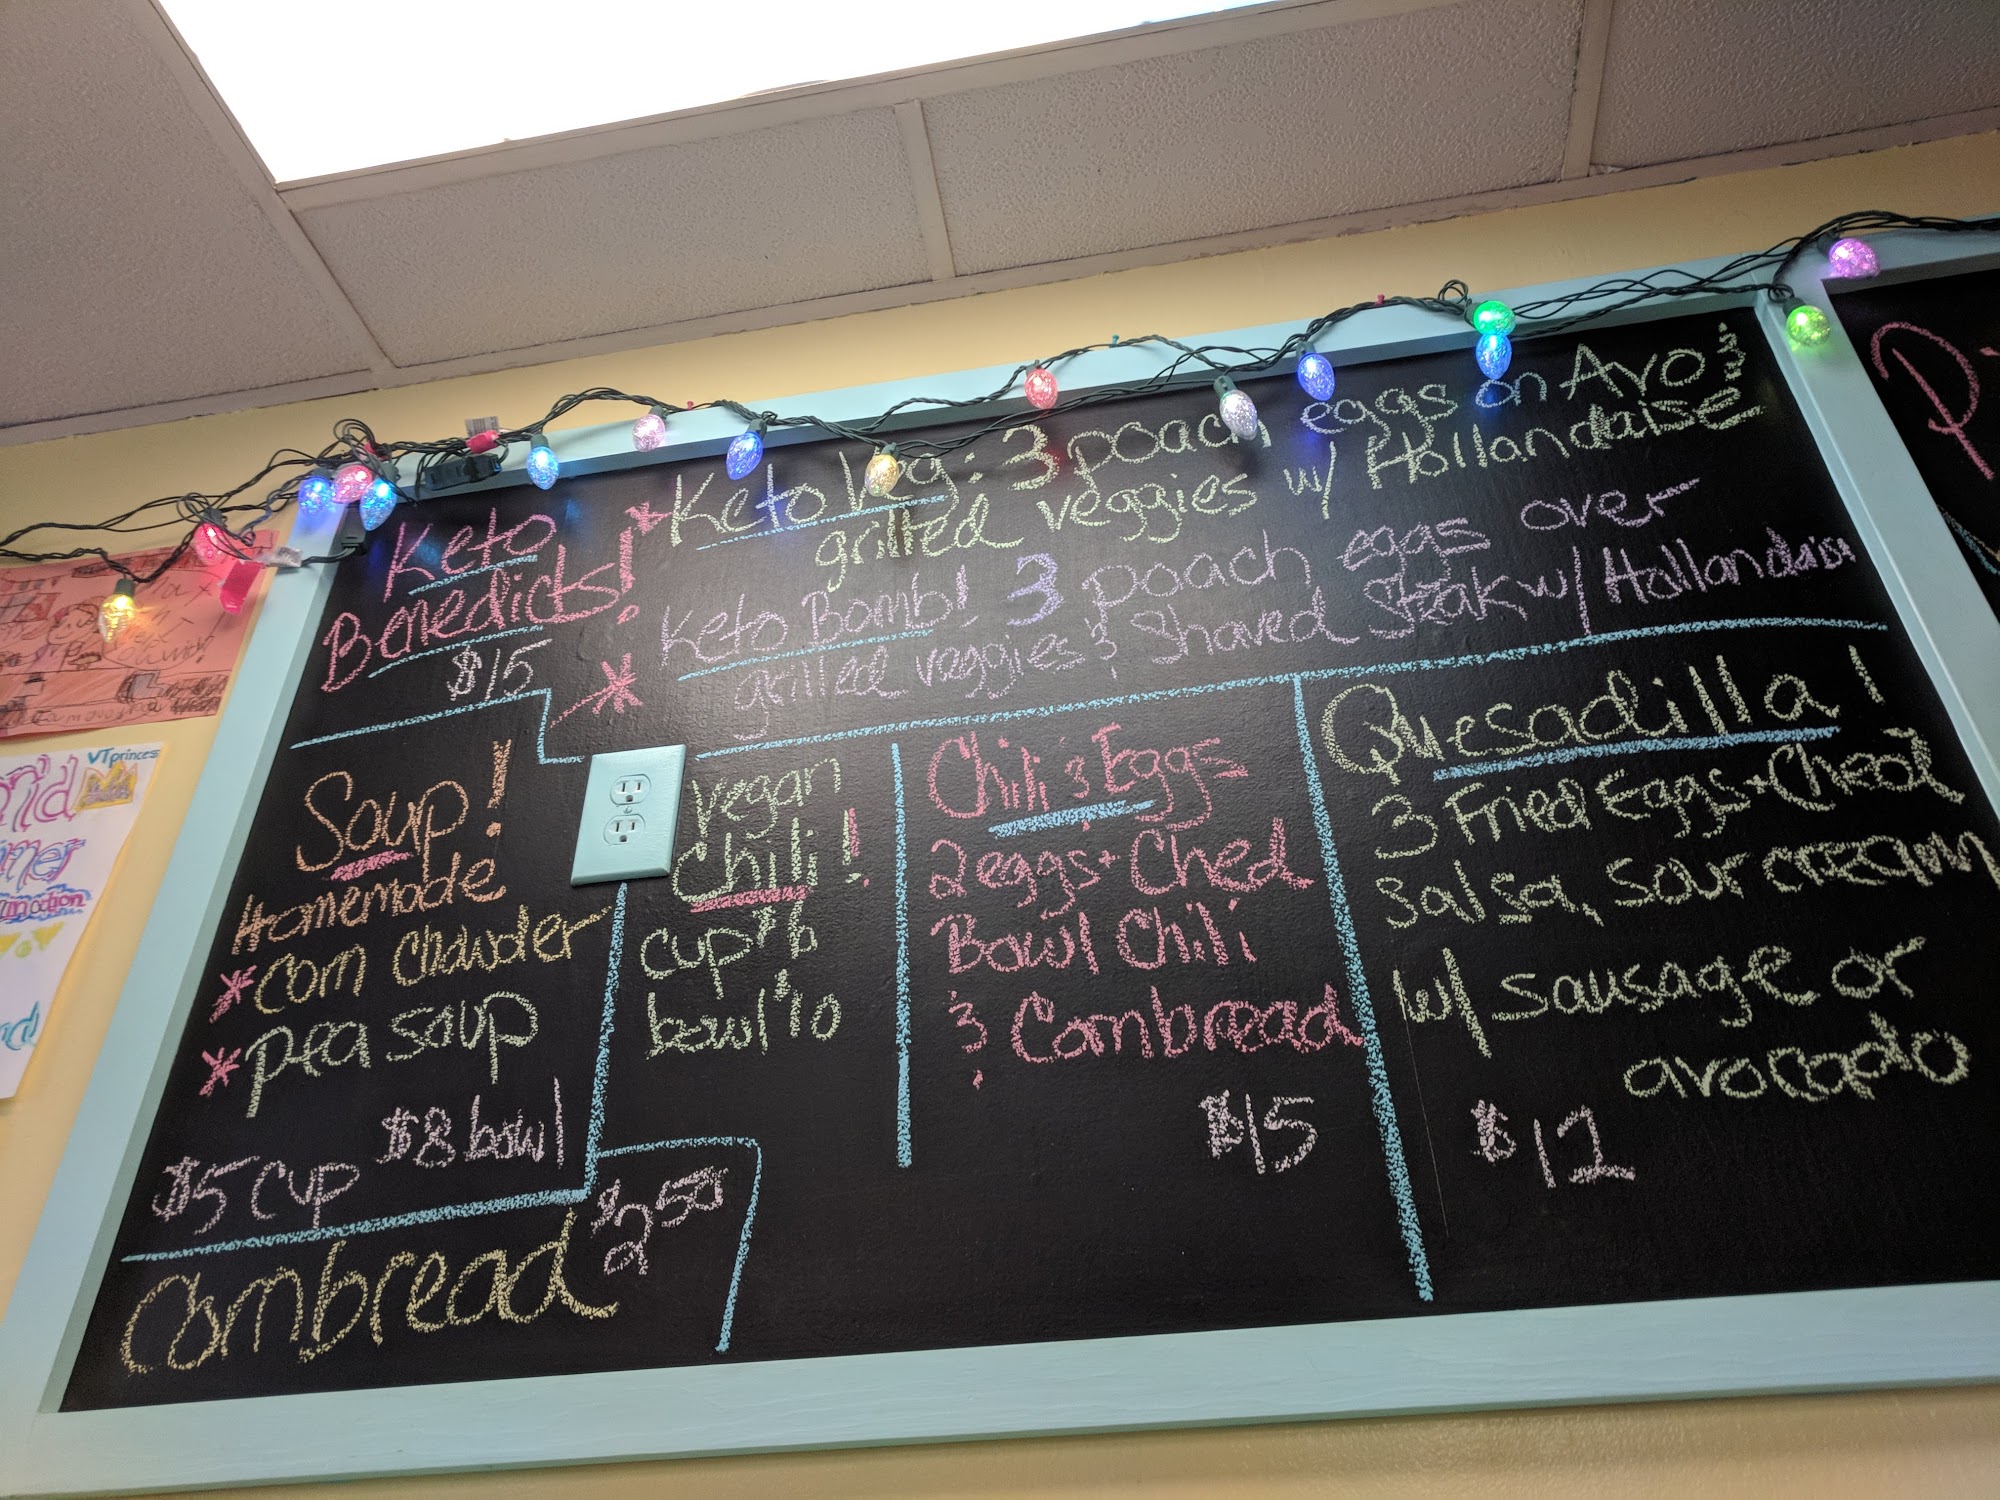 Keto
Benedicts!
$15
* Keto Veg: 3 poach eggs on Avo &
grilled veggies w/ Hollandaise
* Keto Bomb! 3 poach eggs over
grilled veggies & Shaved Steak w/ Hollandaise
Soup!
Homemade
* Corn Chowder
* Pea soup
$5 cup $8 bowl
Cornbread $2.50
vegan
Chili!
cup $6
bowl $10
Chili & Eggs
2 eggs + Ched
Bowl Chili
& Cornbread
$15
Quesadilla!
3 Fried Eggs + Ched
Salsa, Sour cream
w/ sausage or
avocado
$12
VTprincess